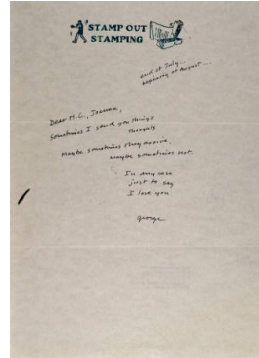 STAMP OUT
STAMPING
end of July...
beginning of August...
Dear M.C., Joanna,
Sometimes I send you things
thoughts
Maybe sometimes they arrive,
maybe sometimes not.
In any case
just to say
I love you
george